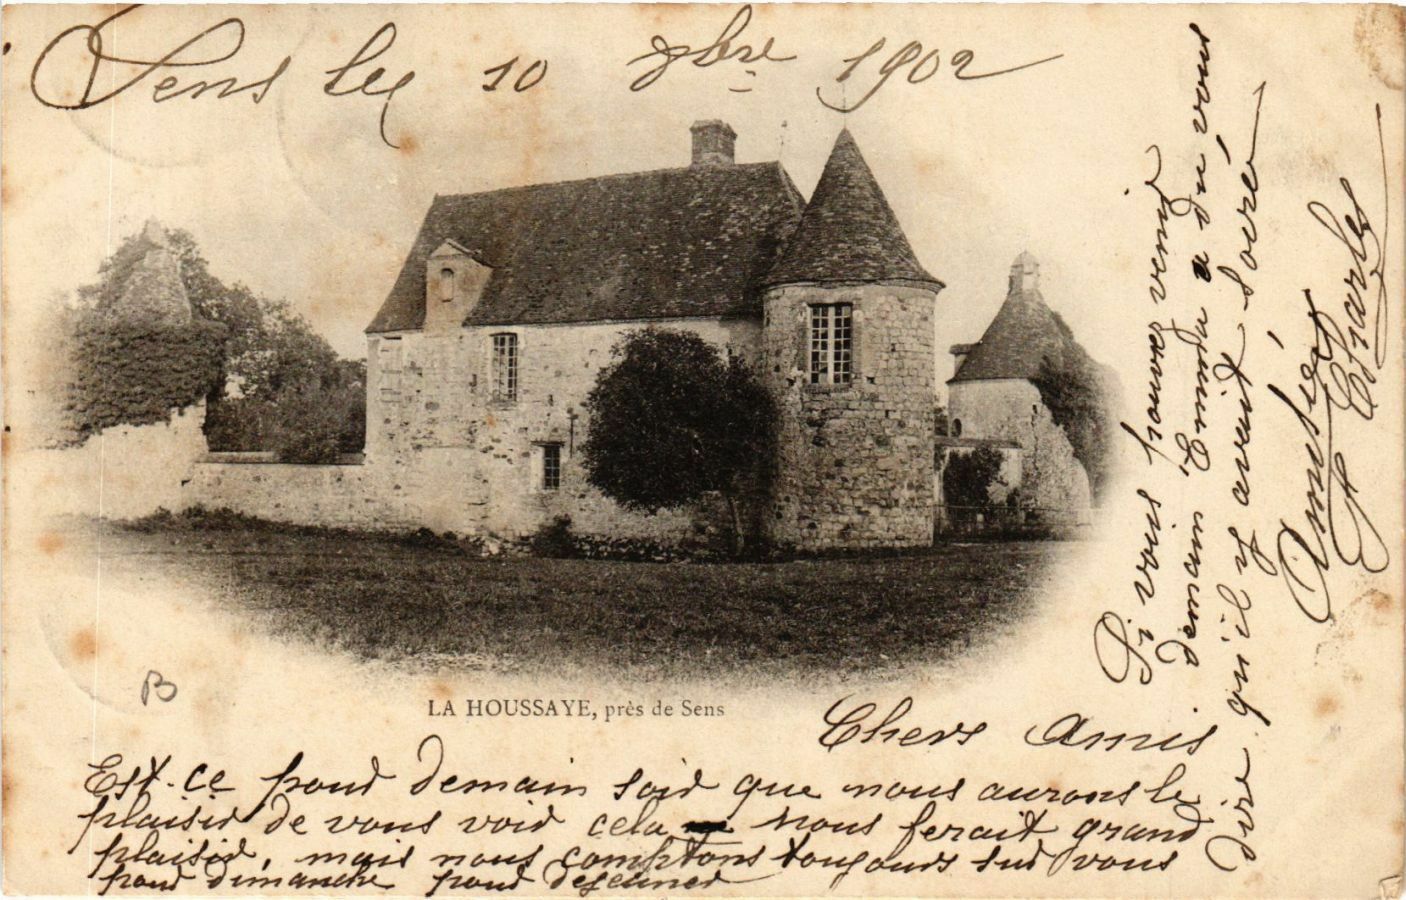 Sens le 10 Xbre 1902
LA HOUSSAYE, près de Sens
B
Chers Amis
Est-ce pour demain soir que nous aurons le
plaisir de vous voir cela nous ferait grand
plaisir, mais nous comptons toujours sur vous
pour dimanche pour déjeuner
Si vous pouvez venir
demain Emma a du vous
dire qu'il y avait soirée
Amitiés
Charles